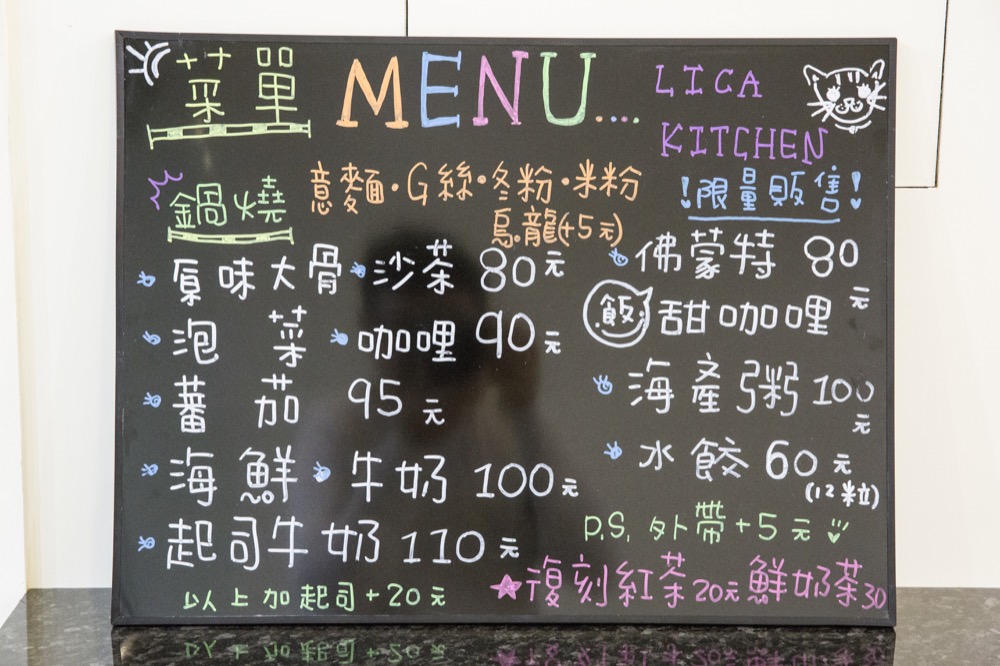 菜單 MENU.... LICA KITCHEN
鍋燒 意麵·G絲·冬粉·米粉
烏龍(+5元)
原味大骨 沙茶 80元
泡菜 咖哩 90元
蕃茄 95元
海鮮 牛奶 100元
起司牛奶 110元
以上加起司+20元
!限量販售!
佛蒙特 80元
飯 甜咖哩
海產粥 100元
水餃 60元
(12粒)
P.S. 外帶+5元
★復刻紅茶20元鮮奶茶30